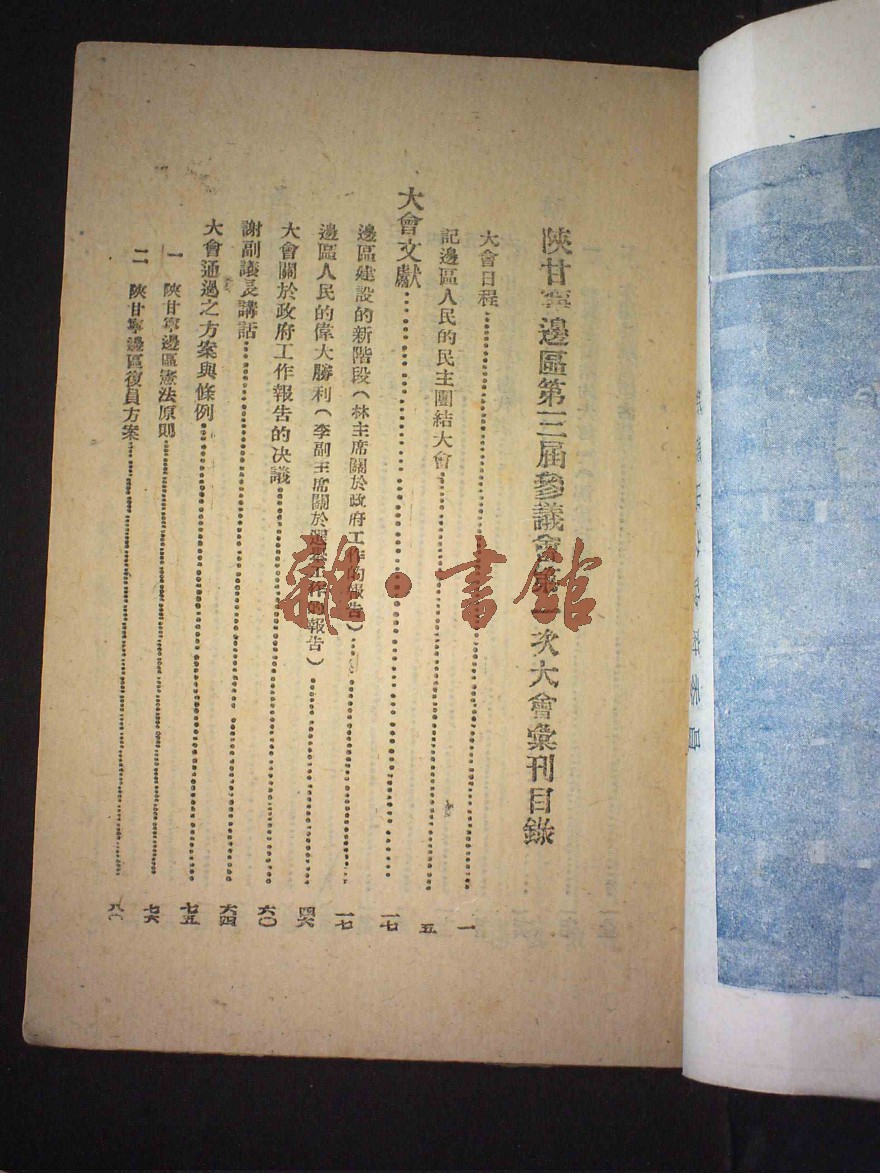 陝甘寧邊區第三屆參議會第一次大會彙刊目錄
大會日程……一
記邊區人民的民主團結大會……五
大會文獻……一七
邊區建設的新階段(林主席關於政府工作的報告)……一七
邊區人民的偉大勝利(李副主席關於選舉工作的報告)……四六
大會關於政府工作報告的决議……六〇
謝副議長講話……六四
大會通過之方案與條例……七五
一 陝甘寧邊區憲法原則……七六
二 陝甘寧邊區復員方案……
雜·書館